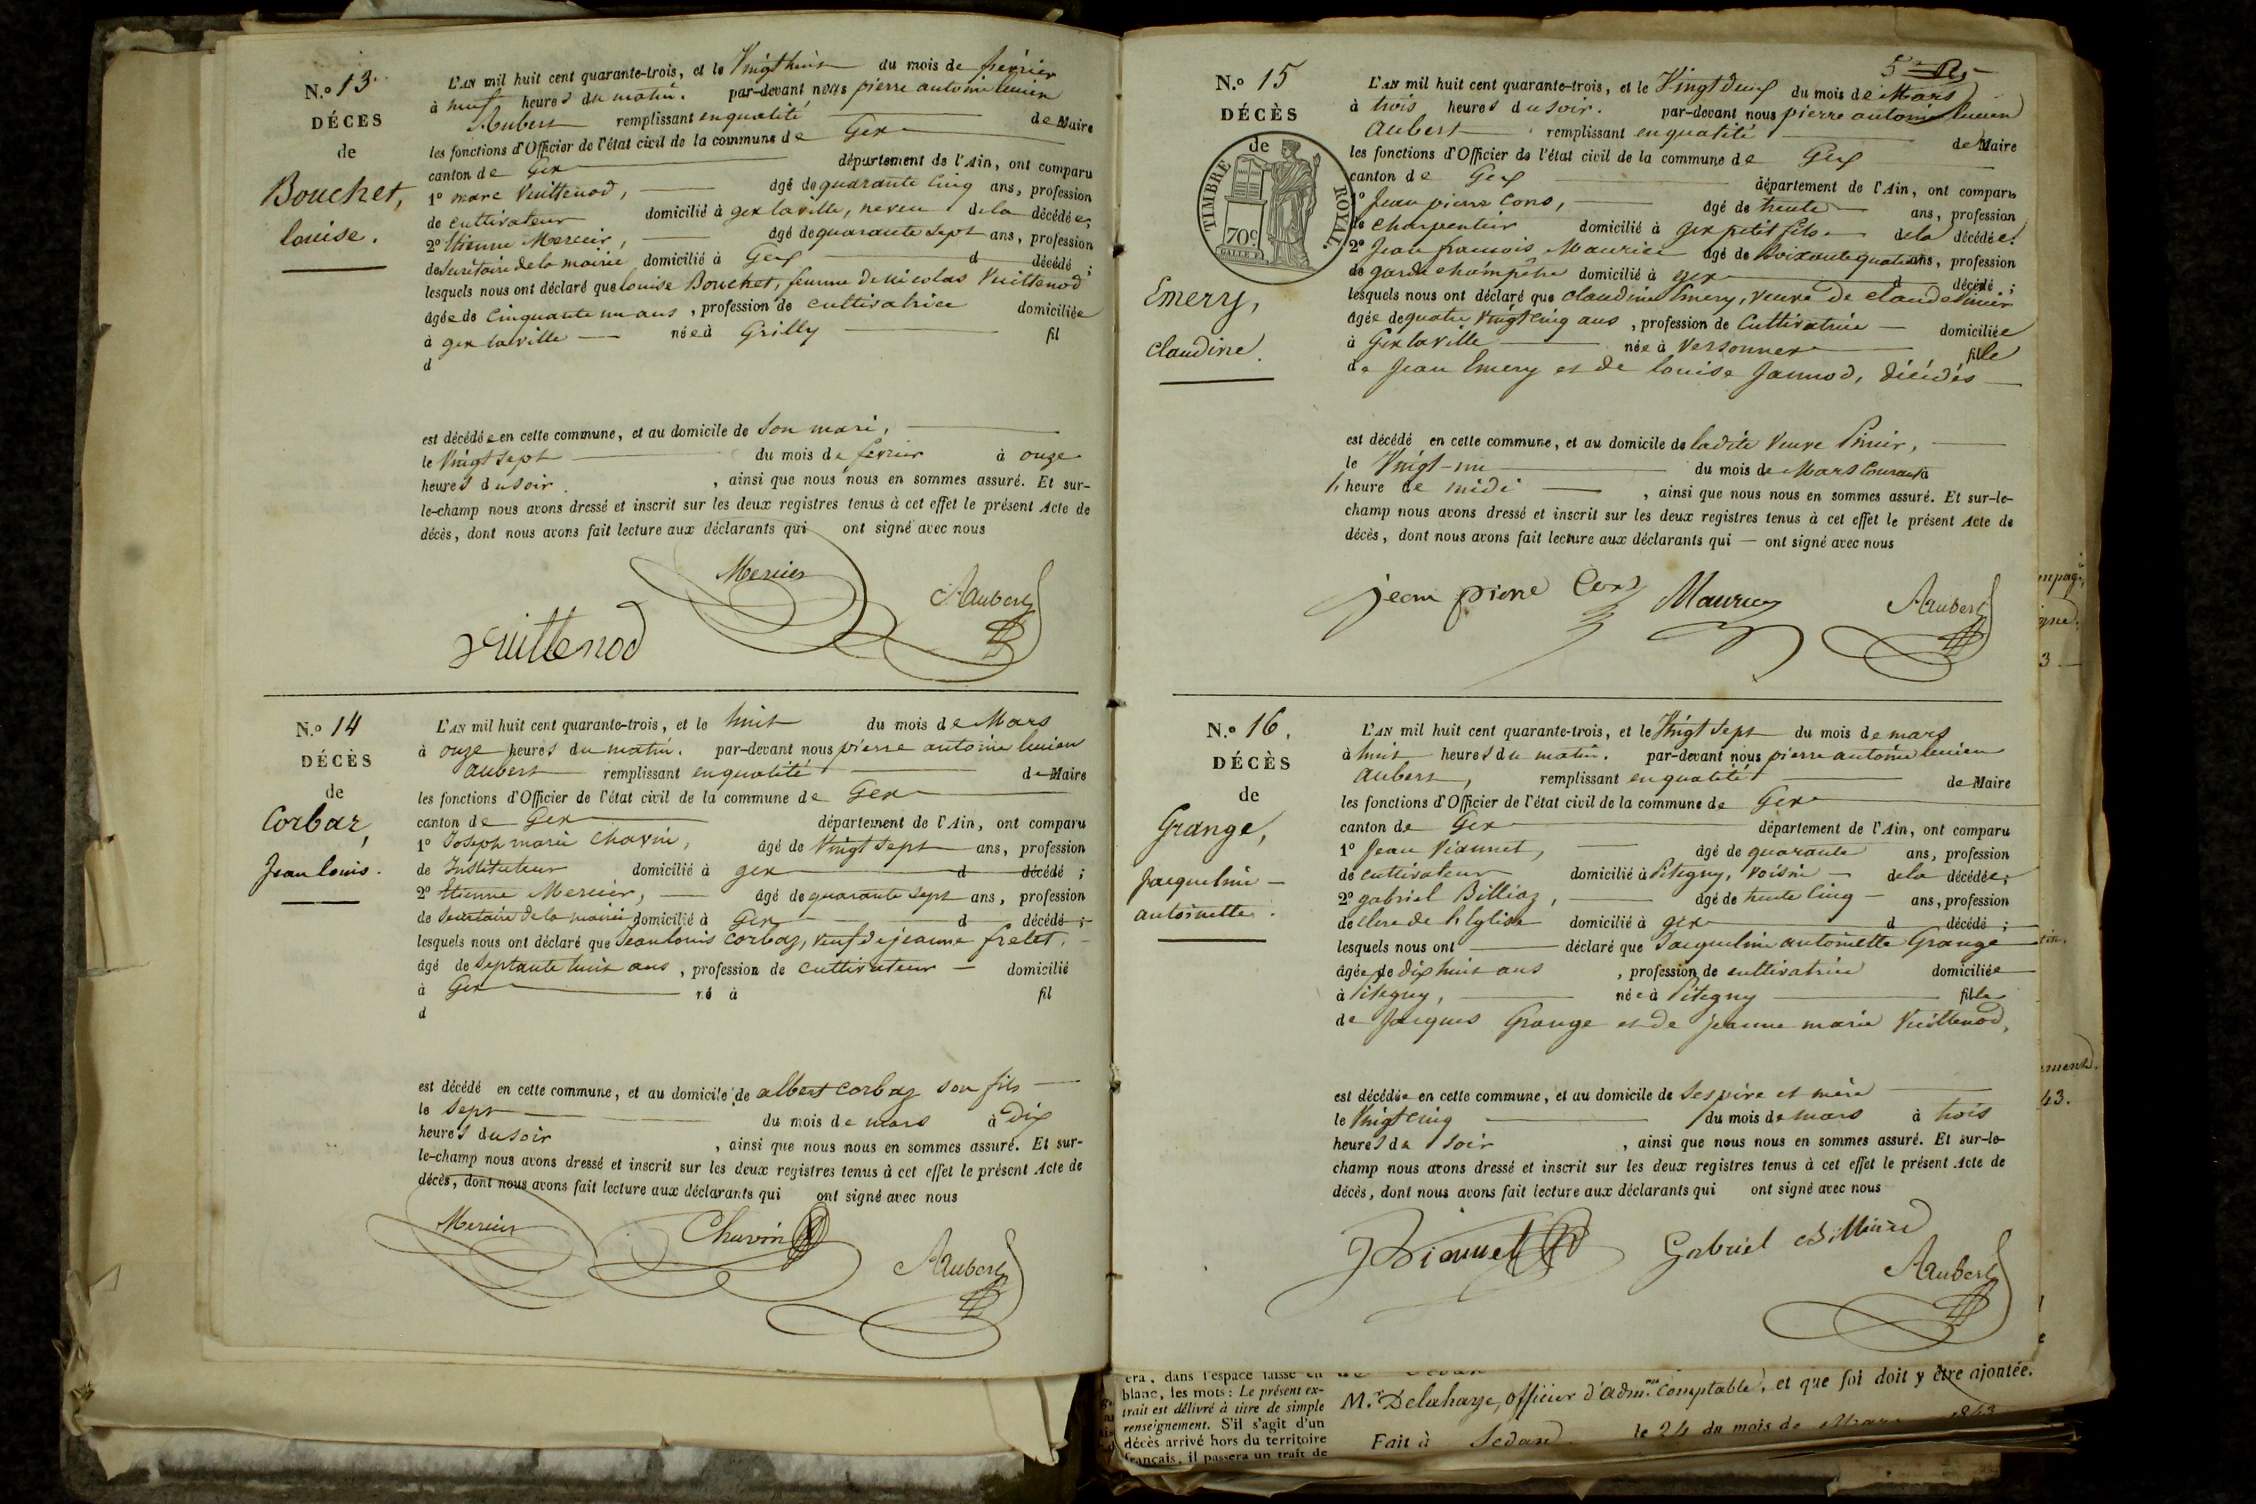 N.º 13.
DÉCÈS
de
Bouchet,
louise.
L'AN mil huit cent quarante-trois, et le Vingt huit du mois de février
à neuf heures du matin. par-devant nous pierre antoine lucien
Aubert remplissant en qualité de Maire
les fonctions d'Officier de l'état civil de la commune de Gex
canton de Gex département de l'Ain, ont comparu
1º marc Vuillenod, âgé de quarante cinq ans, profession
de cultivateur domicilié à gex la ville, neveu de la décédée;
2º Etienne Mercier, âgé de quarante sept ans, profession
de Secrétaire de la mairie domicilié à Gex d décédé;
lesquels nous ont déclaré que louise Bouchet, femme de nicolas Vuillenod
âgée de cinquante un ans, profession de cultivatrice domiciliée
à gex la ville née à Grilly fil
d
est décédée en cette commune, et au domicile de Son mari,
le Vingt sept du mois de février à onze
heures du soir. , ainsi que nous nous en sommes assuré. Et sur-
le-champ nous avons dressé et inscrit sur les deux registres tenus à cet effet le présent Acte de
décès, dont nous avons fait lecture aux déclarants qui ont signé avec nous
Mercier
Aubert
Vuillenod
N.º 14
DÉCÈS
de
Corbaz,
Jean louis.
L'AN mil huit cent quarante-trois, et le huit du mois de Mars
à onze heures du matin. par-devant nous pierre antoine lucien
aubert remplissant en qualité de Maire
les fonctions d'Officier de l'état civil de la commune de Gex
canton de Gex département de l'Ain, ont comparu
1º Joseph marie Chavin, âgé de Vingt sept ans, profession
de Instituteur domicilié à gex d décédé;
2º Etienne Mercier, âgé de quarante sept ans, profession
de Secrétaire de la mairie domicilié à Gex d décédé;
lesquels nous ont déclaré que Jean louis Corbaz, veuf de jeanne frelet,
âgé de Septante huit ans, profession de cultivateur domicilié
à Gex né à fil
d
est décédé en cette commune, et au domicile de albert corbaz son fils
le sept du mois de mars à Dix
heures du soir , ainsi que nous nous en sommes assuré. Et sur-
le-champ nous avons dressé et inscrit sur les deux registres tenus à cet effet le présent Acte de
décès, dont nous avons fait lecture aux déclarants qui ont signé avec nous
Mercier
Chavin
Aubert
N.º 15
DÉCÈS
de
TIMBRE ROYAL.
70c.
Emery,
claudine.
L'AN mil huit cent quarante-trois, et le Vingt deux du mois de Mars
à trois heures du soir. par-devant nous pierre antoine lucien
Aubert remplissant en qualité de Maire
les fonctions d'Officier de l'état civil de la commune de Gex
canton de Gex département de l'Ain, ont comparu
1º Jean pierre Cons, âgé de trente ans, profession
de charpentier domicilié à Gex petit fils de la décédée;
2º Jean francois Maurice âgé de Soixante quatre ans, profession
de garde champêtre domicilié à gex d décédé;
lesquels nous ont déclaré que claudine Emery, veuve de claude
âgée de quatre Vingt cinq ans, profession de Cultivatrice domiciliée
à Gex la ville née à Versonnex fille
de Jean Emery et de louise Jannod, décédés
est décédé en cette commune, et au domicile de ladite Veuve
le Vingt-un du mois de Mars Courant à
heure de midi , ainsi que nous nous en sommes assuré. Et sur-le-
champ nous avons dressé et inscrit sur les deux registres tenus à cet effet le présent Acte de
décès, dont nous avons fait lecture aux déclarants qui ont signé avec nous
jean pierre Cons
Maurice
Aubert
N.º 16.
DÉCÈS
de
Grange,
Jacqueline
antoinette.
L'AN mil huit cent quarante-trois, et le Vingt sept du mois de mars
à huit heures du matin. par-devant nous pierre antoine lucien
Aubert, remplissant en qualité de Maire
les fonctions d'Officier de l'état civil de la commune de Gex
canton de Gex département de l'Ain, ont comparu
1º Jean Viannet, âgé de quarante ans, profession
de cultivateur domicilié à Pitegny, voisin de la décédée;
2º gabriel Billiaz, âgé de trente cinq ans, profession
de clerc de l'Eglise domicilié à gex d décédé;
lesquels nous ont déclaré que Jacqueline antoinette Grange
âgée de dix huit ans, profession de cultivatrice domiciliée
à Pitegny, née à Pitegny fille
de Jacques Grange et de jeanne marie Vuillenod,
est décédée en cette commune, et au domicile de Ses père et mère
le Vingt cinq du mois de mars à trois
heures du soir , ainsi que nous nous en sommes assuré. Et sur-le-
champ nous avons dressé et inscrit sur les deux registres tenus à cet effet le présent Acte de
décès, dont nous avons fait lecture aux déclarants qui ont signé avec nous
J Viannet
Gabriel
Aubert
blanc, les mots: Le présent ex-
trait est délivré à titre de simple
renseignement. S'il s'agit d'un
décès arrivé hors du territoire
français, il passera un trait de
M.r Delahaye, officier d'adm.on comptable, et que foi doit y être ajoutée.
Fait à Sedan le 24 du mois de Mars 1843